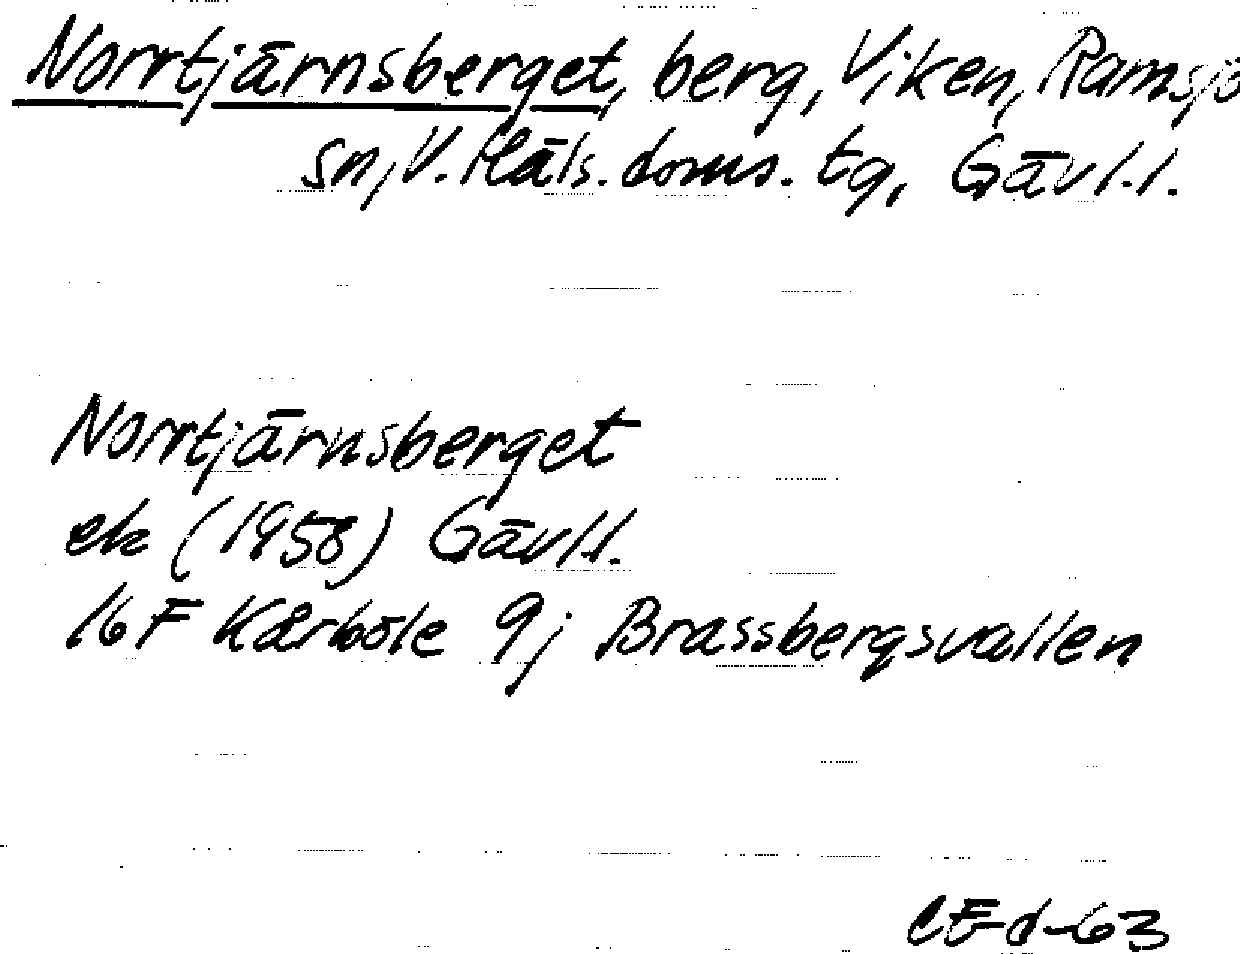 Norrtjärnsberget, berg, Viken, Ramsjö
sn, V. Häls. doms. tg, Gävl.l.
Norrtjärnsberget
ek (1958) Gävl.l.
16 F Kårböle 9j Brassbergsvallen
CE d-63